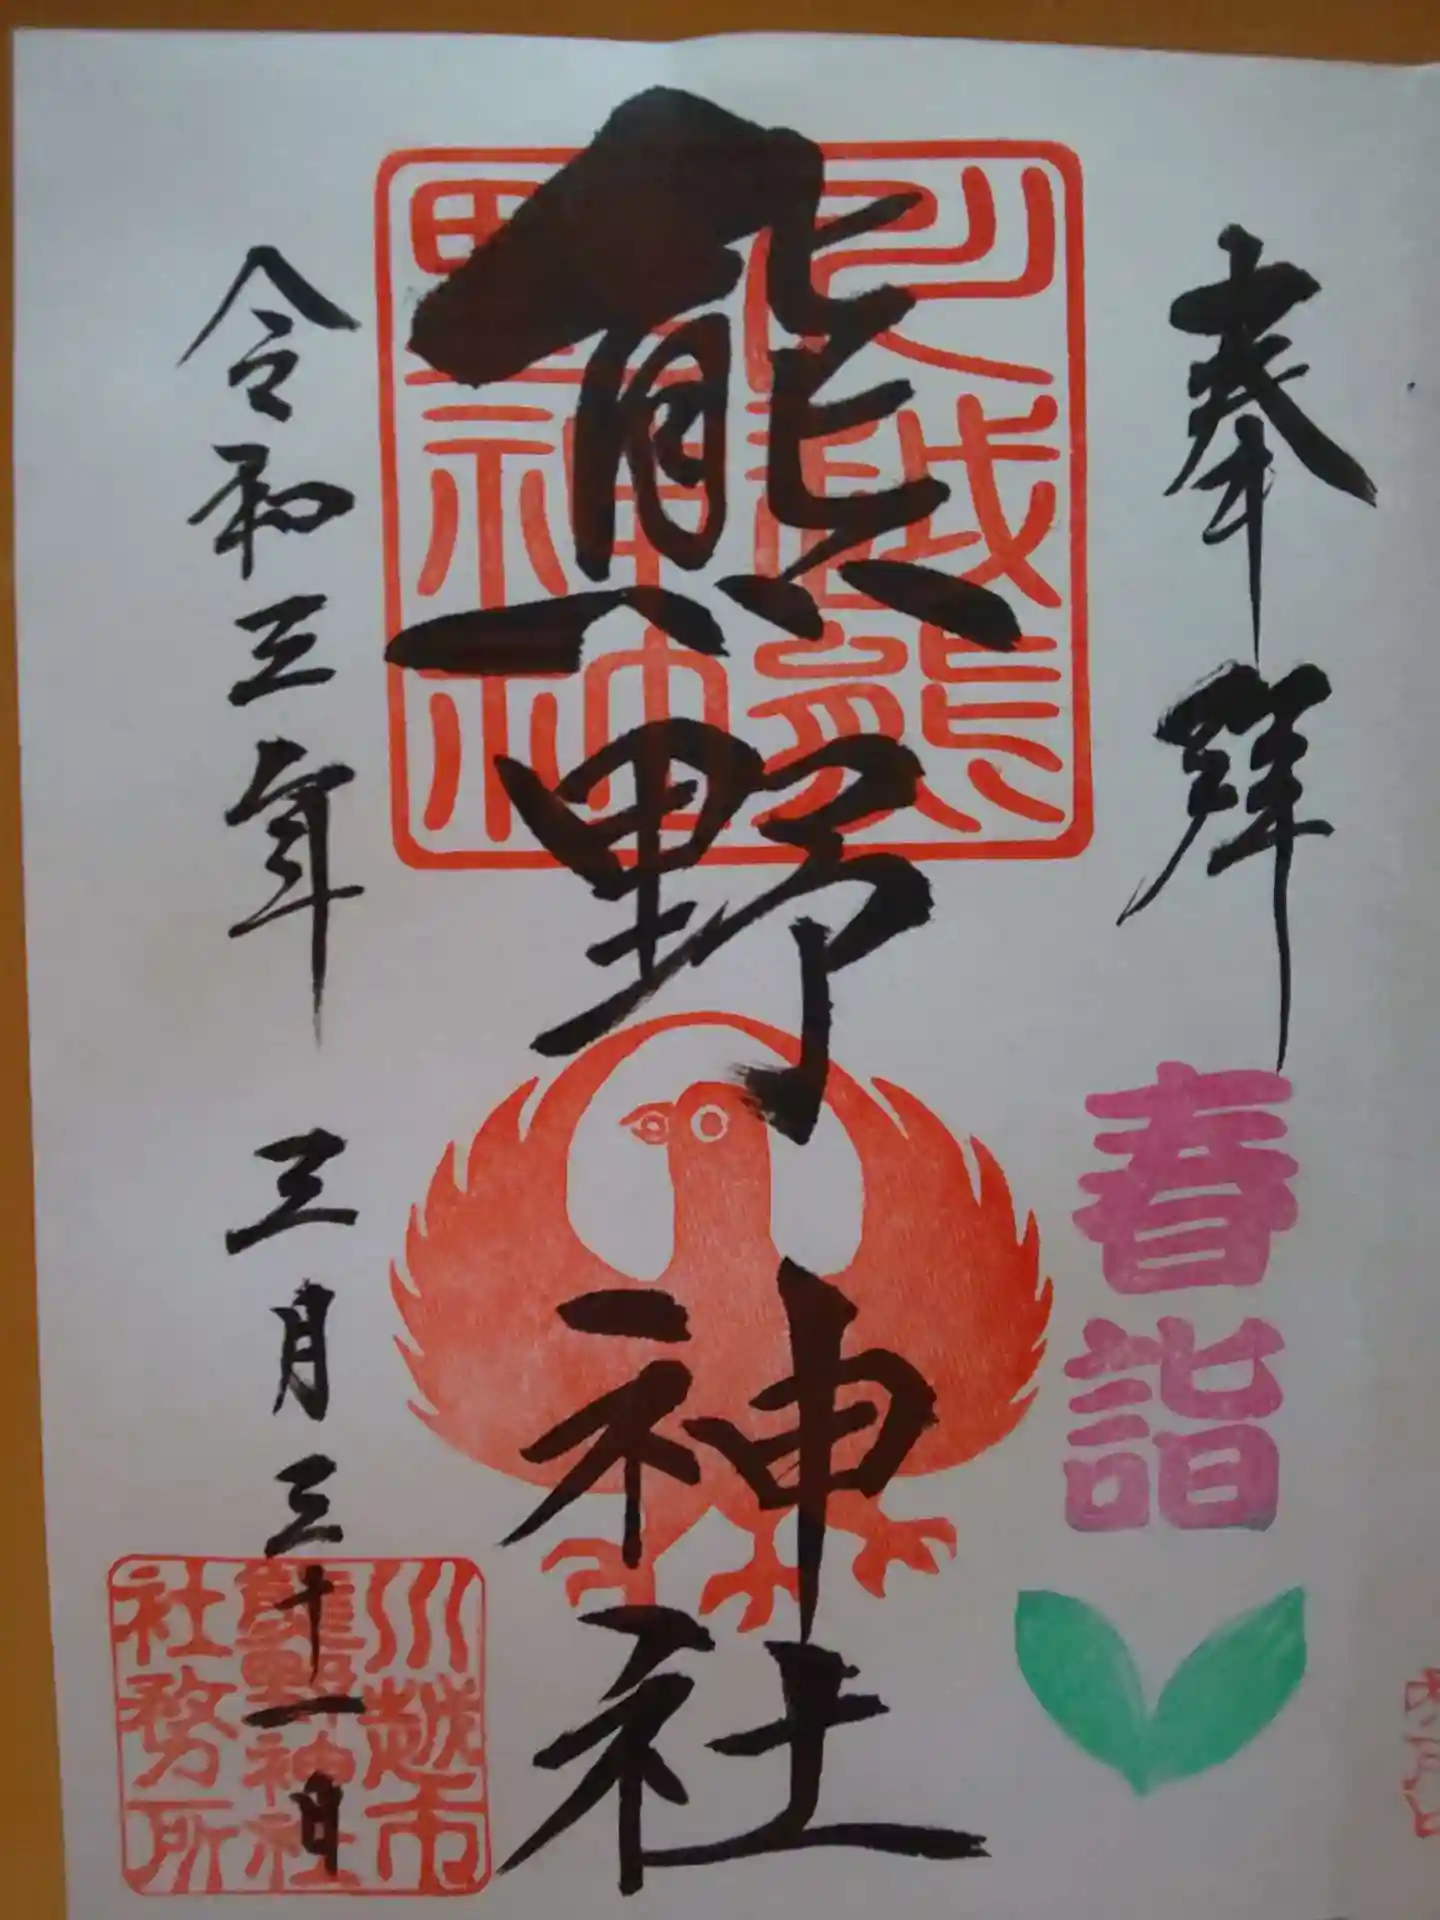 奉拝
春詣
熊野神社
令和三年 三月 三十一日
川越市
熊野神社
社務所